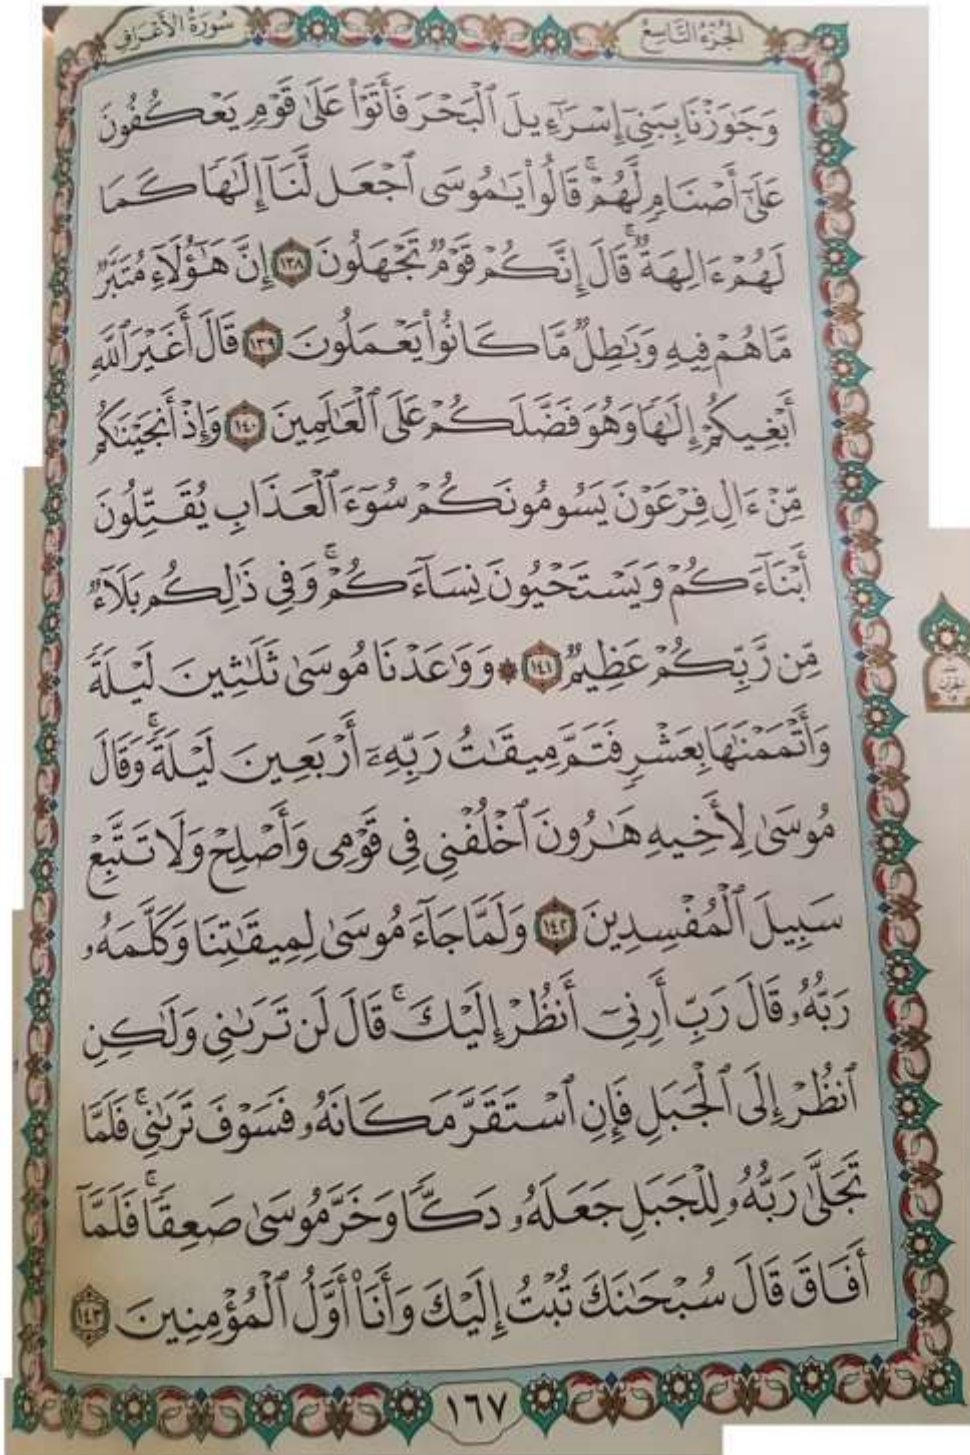 الجزء التاسع
سورة الأعراف
وَجَٰوَزْنَا بِبَنِىٓ إِسْرَٰٓءِيلَ ٱلْبَحْرَ فَأَتَوْا۟ عَلَىٰ قَوْمٍ يَعْكُفُونَ
عَلَىٰٓ أَصْنَامٍ لَّهُمْ ۚ قَالُوا۟ يَٰمُوسَى ٱجْعَل لَّنَآ إِلَٰهًا كَمَا
لَهُمْ ءَالِهَةٌ ۚ قَالَ إِنَّكُمْ قَوْمٌ تَجْهَلُونَ ١٣٨ إِنَّ هَٰٓؤُلَآءِ مُتَبَّرٌ
مَّا هُمْ فِيهِ وَبَٰطِلٌ مَّا كَانُوا۟ يَعْمَلُونَ ١٣٩ قَالَ أَغَيْرَ ٱللَّهِ
أَبْغِيكُمْ إِلَٰهًا وَهُوَ فَضَّلَكُمْ عَلَى ٱلْعَٰلَمِينَ ١٤٠ وَإِذْ أَنجَيْنَٰكُم
مِّنْ ءَالِ فِرْعَوْنَ يَسُومُونَكُمْ سُوٓءَ ٱلْعَذَابِ يُقَتِّلُونَ
أَبْنَآءَكُمْ وَيَسْتَحْيُونَ نِسَآءَكُمْ ۚ وَفِى ذَٰلِكُم بَلَآءٌ
مِّن رَّبِّكُمْ عَظِيمٌ ١٤١ ۞ وَوَٰعَدْنَا مُوسَىٰ ثَلَٰثِينَ لَيْلَةً
وَأَتْمَمْنَٰهَا بِعَشْرٍ فَتَمَّ مِيقَٰتُ رَبِّهِۦٓ أَرْبَعِينَ لَيْلَةً ۚ وَقَالَ
مُوسَىٰ لِأَخِيهِ هَٰرُونَ ٱخْلُفْنِى فِى قَوْمِى وَأَصْلِحْ وَلَا تَتَّبِعْ
سَبِيلَ ٱلْمُفْسِدِينَ ١٤٢ وَلَمَّا جَآءَ مُوسَىٰ لِمِيقَٰتِنَا وَكَلَّمَهُۥ
رَبُّهُۥ قَالَ رَبِّ أَرِنِىٓ أَنظُرْ إِلَيْكَ ۚ قَالَ لَن تَرَىٰنِى وَلَٰكِنِ
ٱنظُرْ إِلَى ٱلْجَبَلِ فَإِنِ ٱسْتَقَرَّ مَكَانَهُۥ فَسَوْفَ تَرَىٰنِى ۚ فَلَمَّا
تَجَلَّىٰ رَبُّهُۥ لِلْجَبَلِ جَعَلَهُۥ دَكًّا وَخَرَّ مُوسَىٰ صَعِقًا ۚ فَلَمَّآ
أَفَاقَ قَالَ سُبْحَٰنَكَ تُبْتُ إِلَيْكَ وَأَنَا۠ أَوَّلُ ٱلْمُؤْمِنِينَ ١٤٣
١٦٧